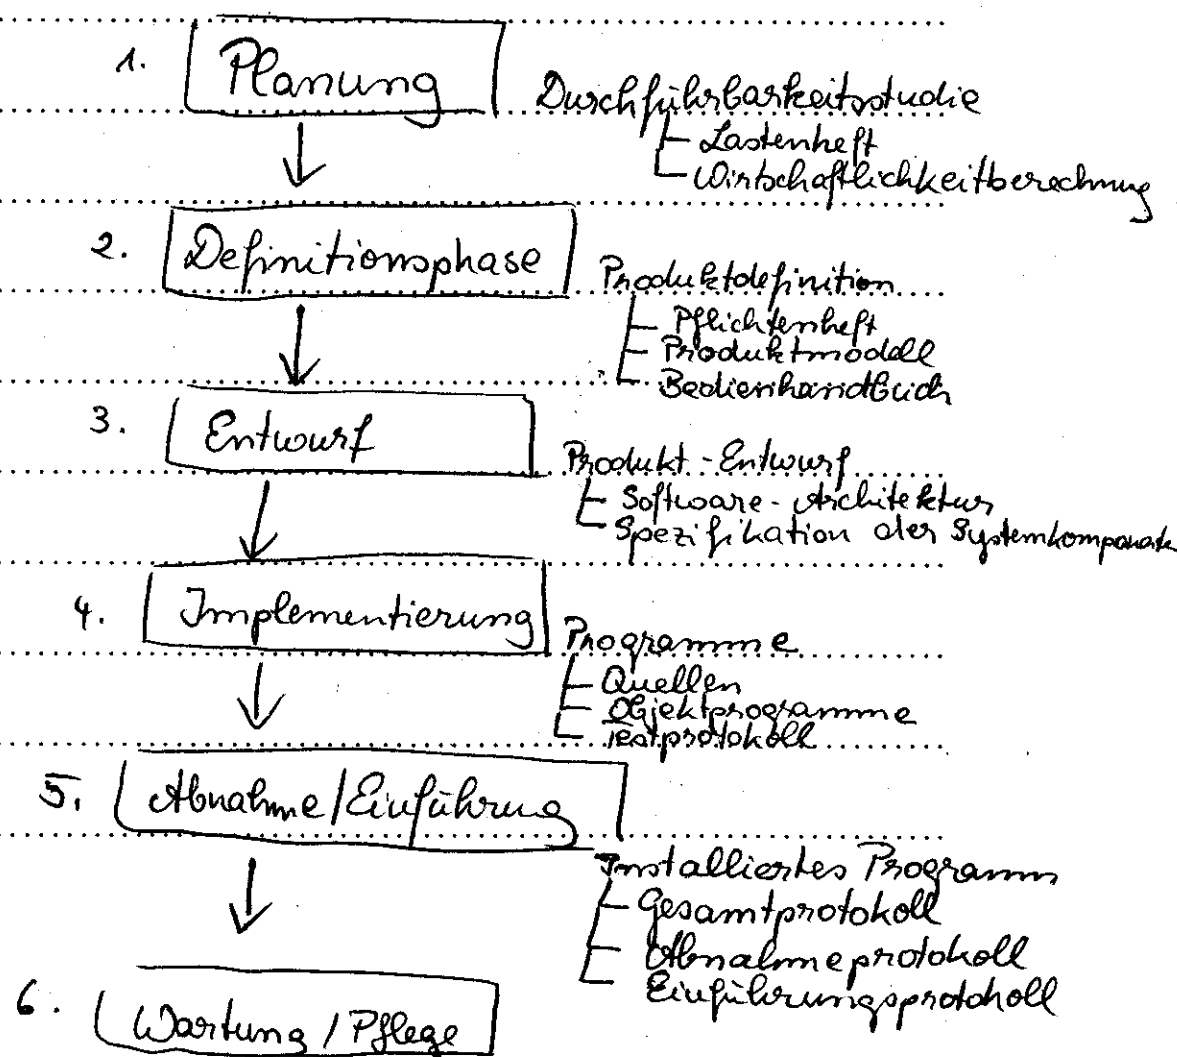 1. Planung
Durchführbarkeitsstudie
Lastenheft
Wirtschaftlichkeitberechnung
2. Definitionsphase
Produktdefinition
Pflichtenheft
Produktmodell
Bedienhandbuch
3. Entwurf
Produkt-Entwurf
Software-Architektur
Spezifikation der Systemkomponente
4. Implementierung
Programme
Quellen
Objektprogramme
Testprotokoll
5. Abnahme/Einführung
Installiertes Programm
Gesamtprotokoll
Abnahmeprotokoll
Einführungsprotokoll
6. Wartung / Pflege